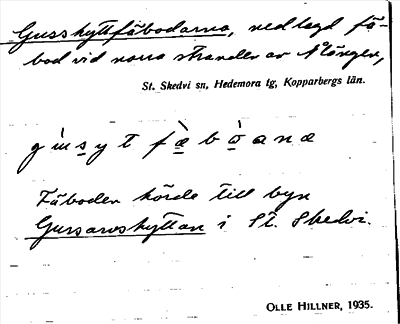 Gusshyttfäbodarna, nedlagd fä-
bod vid norra stranden av Nlången,
St. Skedvi sn, Hedemora tg, Kopparbergs län.
Fäboden hörde till byn
Gussarvshyttan i St. Skedvi.
OLLE HILLNER, 1935.